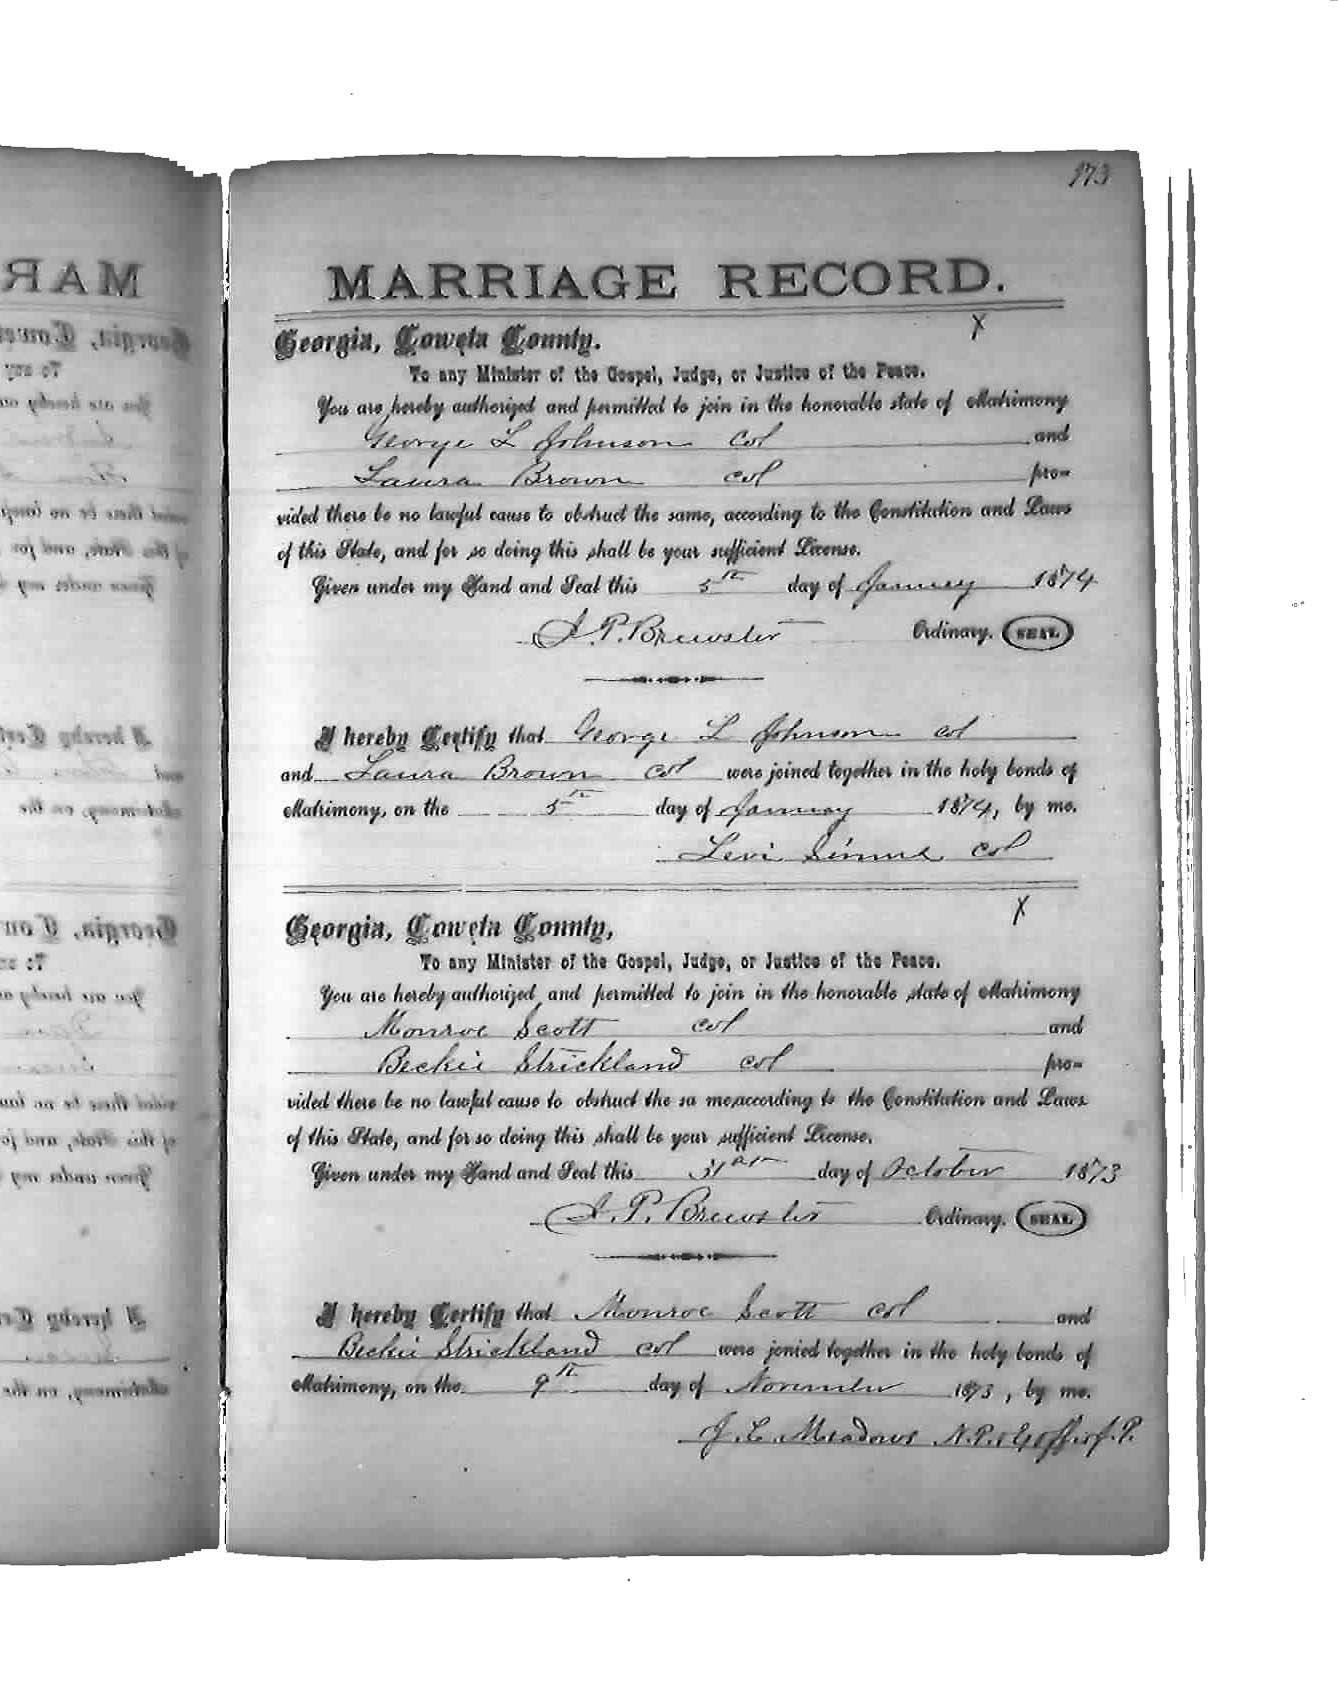 173
MARRIAGE RECORD.
X
Georgia, Coweta County.
To any Minister of the Gospel, Judge, or Justice of the Peace.
You are hereby authorized and permitted to join in the honorable state of Matrimony
George L Johnson col and
Laura Brown col pro-
vided there be no lawful cause to obstruct the same, according to the Constitution and Laws
of this State, and for so doing this shall be your sufficient License.
Given under my Hand and Seal this 5th day of January 1874
J. P. Brewster Ordinary. SEAL
I hereby Certify that George L Johnson col
and Laura Brown col were joined together in the holy bonds of
Matrimony, on the 5th day of January 1874, by me.
Levi col
X
Georgia, Coweta County,
To any Minister of the Gospel, Judge, or Justice of the Peace.
You are hereby authorized and permitted to join in the honorable state of Matrimony
Monroe Scott col and
Beckie Strickland col pro-
vided there be no lawful cause to obstruct the sa me, according to the Constitution and Laws
of this State, and for so doing this shall be your sufficient License.
Given under my Hand and Seal this 31st day of October 1873
J. P. Brewster Ordinary. SEAL
I hereby Certify that Monroe Scott col and
Beckie Strickland col were jonied together in the holy bonds of
Matrimony, on the 9th day of November 1873, by me.
J. C Meadows N.P. J.P.